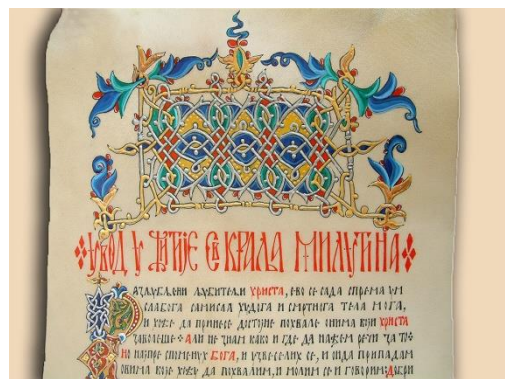 УВОД У ЖИТИЈЕ СВ КРАЉА МИЛУТИНА
РАЗЉУБЉЕНИ ЉУБИТЕЉИ ХРИСТА, ЕВО СЕ САДА СПРЕМА УМ
СЛАБОГА САМИСАЛ ХУДОГА И СМРТНОГА ТЕЛА МОГА,
И ХОЋЕ ДА ПРИНЕСЕ ДОСТОЈНЕ ПОХВАЛЕ ОНИМА КОЈИ ХРИСТА
ЗАВОЛЕШЕ АЛИ НЕ ЗНАМ КАКО И ГДЕ ДА НАЂЕМ РЕЧИ ЗА ТО
НО НАЈПРЕ СПОМЕНУХ БОГА, И УЗВЕСЕЛИХ СЕ, И ОНДА ПРИПАДАМ
ОВИМА КОЈЕ ХОЋУ ДА ПОХВАЛИМ, И МОЛИМ СЕ И ГОВОРИМ: ДОБРИ